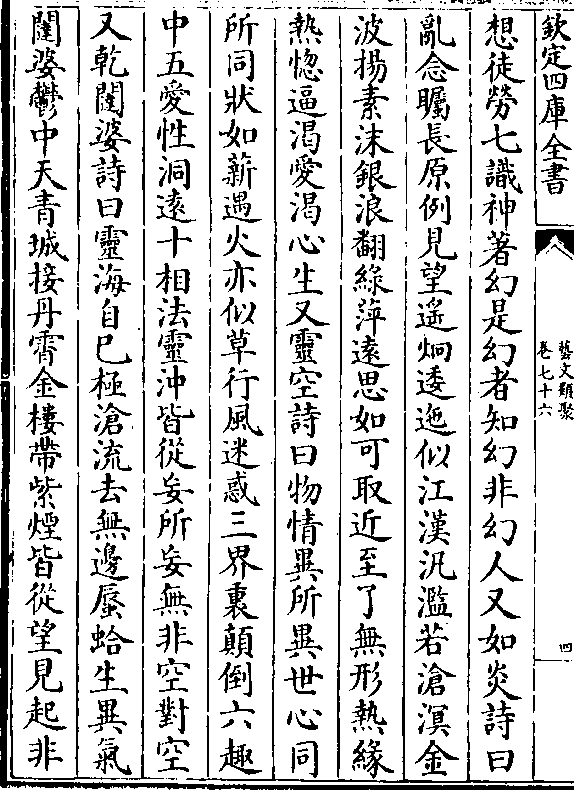 欽定四庫全書
藝文類聚
卷七十六
四
想徒勞七識神著幻是幻者知幻非幻人又如炎詩曰
亂念矚長原例見望遙炯逶迤似江漢汎濫若滄溟金
波揚素沫銀浪翻綠萍遠思如可取近至了無形熱緣
熱惚逼渴愛渴心生又靈空詩曰物情異所異世心同
所同狀如薪遇火亦似草行風迷惑三界裏顛倒六趣
中五愛性洞遠十相法靈沖皆從妄所妄無非空對空
又乾闥婆詩曰靈海自已極滄流去無邊蜃蛤生異氣
闥婆鬱中天青城接丹霄金樓帶紫煙皆從望見起非